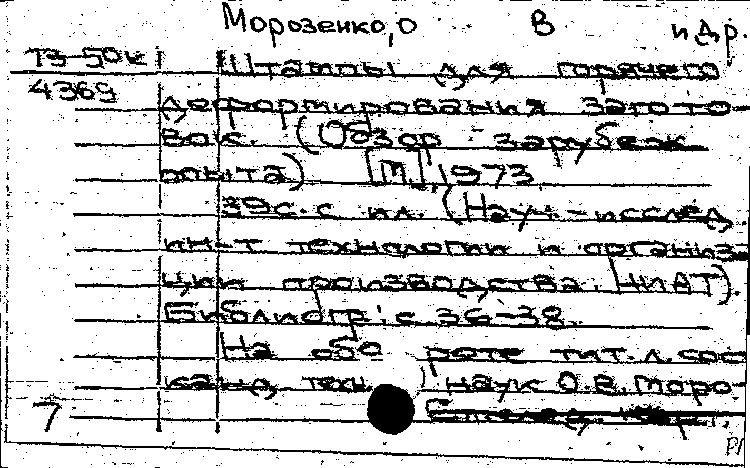 Морозенко, О В и др.
Т3-50к Штампы для горячего
4369 деформирования загото-
вок. (Обзор зарубеж.
опыта) [М], 1973
39с. с ил. (Науч.-исслед.
ин-т технологии и организа
ции производства. НИАТ).
Библиогр: с 36-38.
На обо роте тит. л. сос
канд. техн. наук О.В. Моро-
7